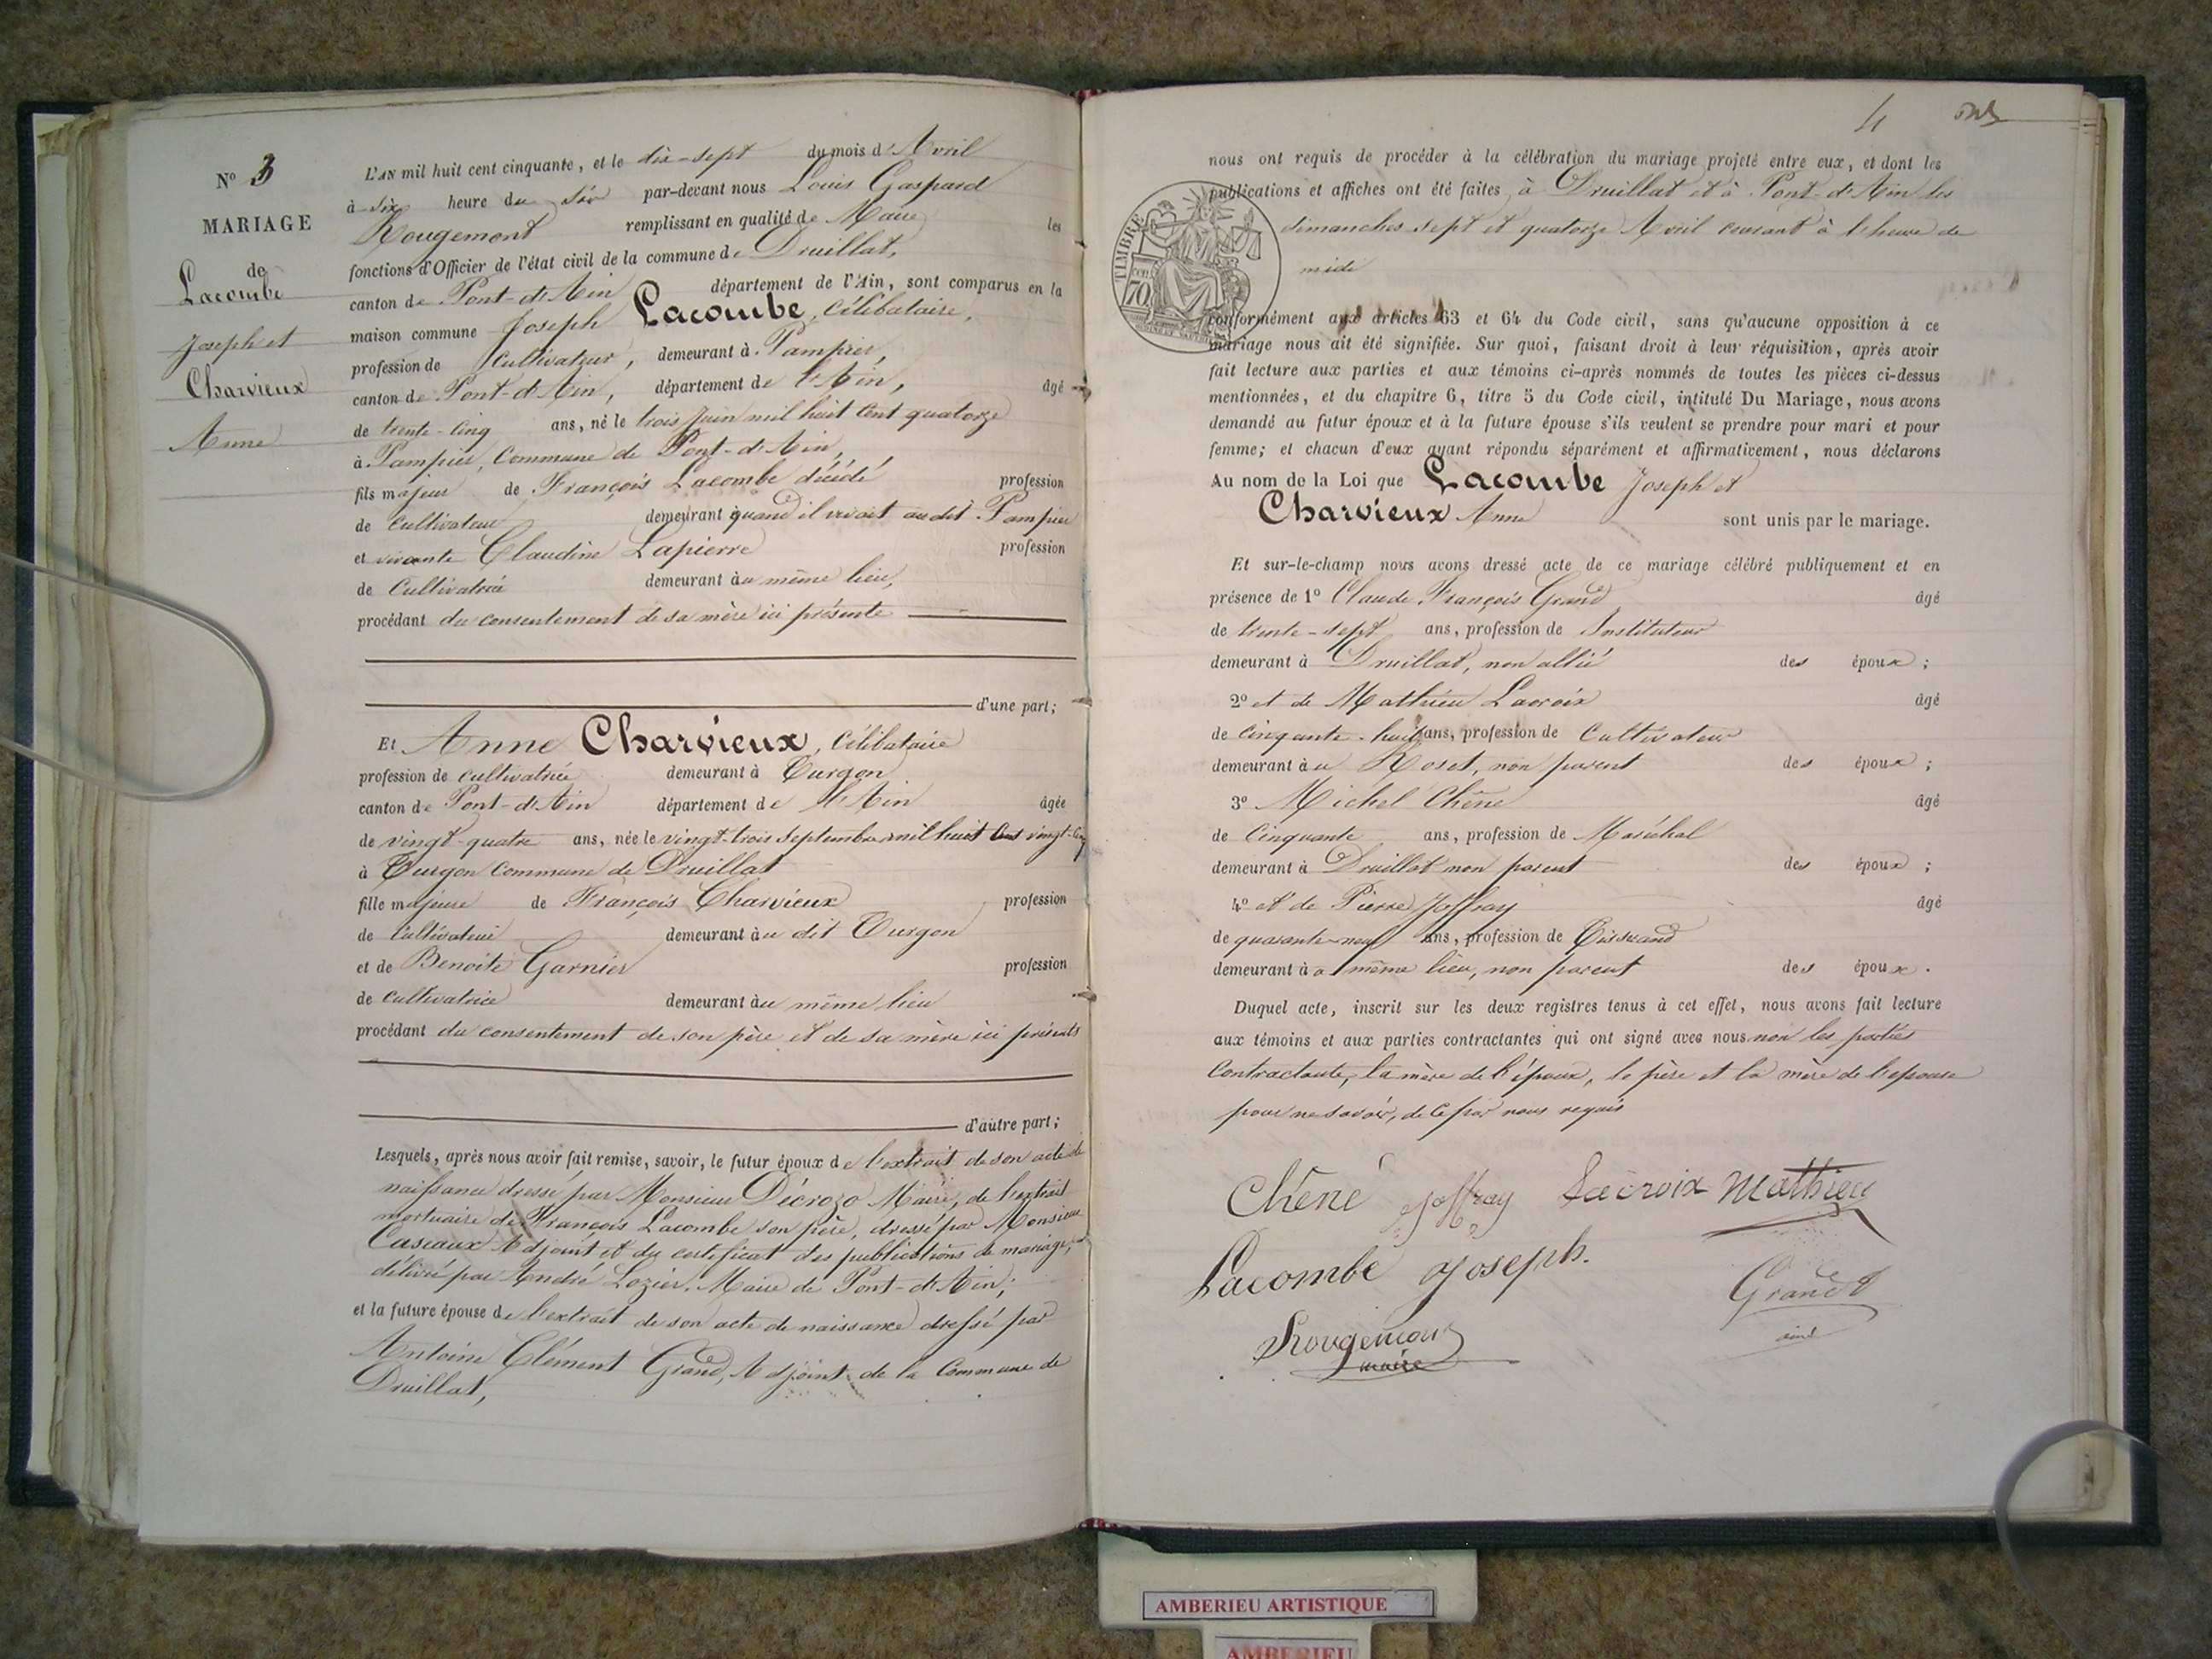 N° 3
MARIAGE
de
Lacombe
Joseph et
Charvieux
Anne
L'AN mil huit cent cinquante, et le dix-sept du mois d'Avril
à six heure du soir par-devant nous Louis Gaspard
Rougemont remplissant en qualité de Maire les
fonctions d'Officier de l'état civil de la commune de Druillat,
canton de Pont-d'Ain département de l'Ain, sont comparus en la
maison commune Joseph Lacombe, Célibataire,
profession de Cultivateur, demeurant à Pampier,
canton de Pont-d'Ain, département de l'Ain, âgé
de trente-cinq ans, né le trois Juin mil huit cent quatorze
à Pampier, Commune de Pont-d'Ain,
fils majeur de François Lacombe décédé profession
de Cultivateur demeurant quand il vivait audit Pampier
et vivante Claudine Lapierre profession
de Cultivatrice demeurant au même lieu,
procédant du consentement de sa mère ici présente
d'une part;
Et Anne Charvieux, Célibataire
profession de cultivatrice demeurant à Turgon
canton de Pont-d'Ain département de l'Ain âgée
de vingt-quatre ans, née le vingt-trois Septembre mil huit cent vingt-cinq
à Turgon Commune de Druillat
fille majeure de François Charvieux profession
de Cultivateur demeurant au dit Turgon
et de Benoite Garnier profession
de Cultivatrice demeurant au même lieu
procédant du consentement de son père et de sa mère ici présents
d'autre part;
Lesquels, après nous avoir fait remise, savoir, le futur époux de l'extrait de son acte de
naissance dressé par Monsieur Décrozo Maire, de l'extrait
mortuaire de François Lacombe son père, dressé par Monsieur
Caseaux Adjoint et du certificat des publications de mariage,
délivré par André Lozier, Maire de Pont-d'Ain;
et la future épouse de l'extrait de son acte de naissance dressé par
Antoine Clément Grand, Adjoint de la Commune de
Druillat,
4
nous ont requis de procéder à la célébration du mariage projeté entre eux, et dont les
publications et affiches ont été faites à Druillat et à Pont-d'Ain les
dimanches sept et quatorze Avril courant à l'heure de
midi
TIMBRE
70
conformément aux articles 63 et 64 du Code civil, sans qu'aucune opposition à ce
mariage nous ait été signifiée. Sur quoi, faisant droit à leur réquisition, après avoir
fait lecture aux parties et aux témoins ci-après nommés de toutes les pièces ci-dessus
mentionnées, et du chapitre 6, titre 5 du Code civil, intitulé Du Mariage, nous avons
demandé au futur époux et à la future épouse s'ils veulent se prendre pour mari et pour
femme; et chacun d'eux ayant répondu séparément et affirmativement, nous déclarons
Au nom de la Loi que Lacombe Joseph et
Charvieux Anne sont unis par le mariage.
Et sur-le-champ nous avons dressé acte de ce mariage célébré publiquement et en
présence de 1° Claude François Grand âgé
de trente-sept ans, profession de Instituteur
demeurant à Druillat, non allié des époux;
2° et de Mathieu Lacroix âgé
de Cinquante-huit ans, profession de Cultivateur
demeurant au Roset, non parent des époux;
3° Michel Chêne âgé
de Cinquante ans, profession de Maréchal
demeurant à Druillat non parent des époux;
4° et de Pierre Joffray âgé
de quarante-neuf ans, profession de Tisserand
demeurant à même lieu, non parent des époux.
Duquel acte, inscrit sur les deux registres tenus à cet effet, nous avons fait lecture
aux témoins et aux parties contractantes qui ont signé avec nous non les parties
Contractante, la mère de l'époux, le père et la mère de l'épouse
pour ne savoir, de ce par nous requis
Chêne Joffray Lacroix Mathieu
Lacombe Joseph. Grand
Rougemont
maire
ainé
AMBERIEU ARTISTIQUE
AMBERIEU